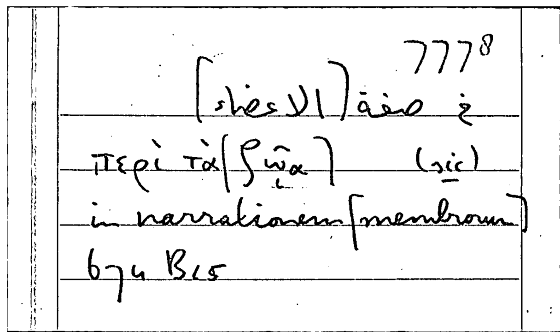 7778
في صفة [الاعضاء]
περὶ τὰ [ζῷα] (sic)
in narrationem [membrorum]
674 B15